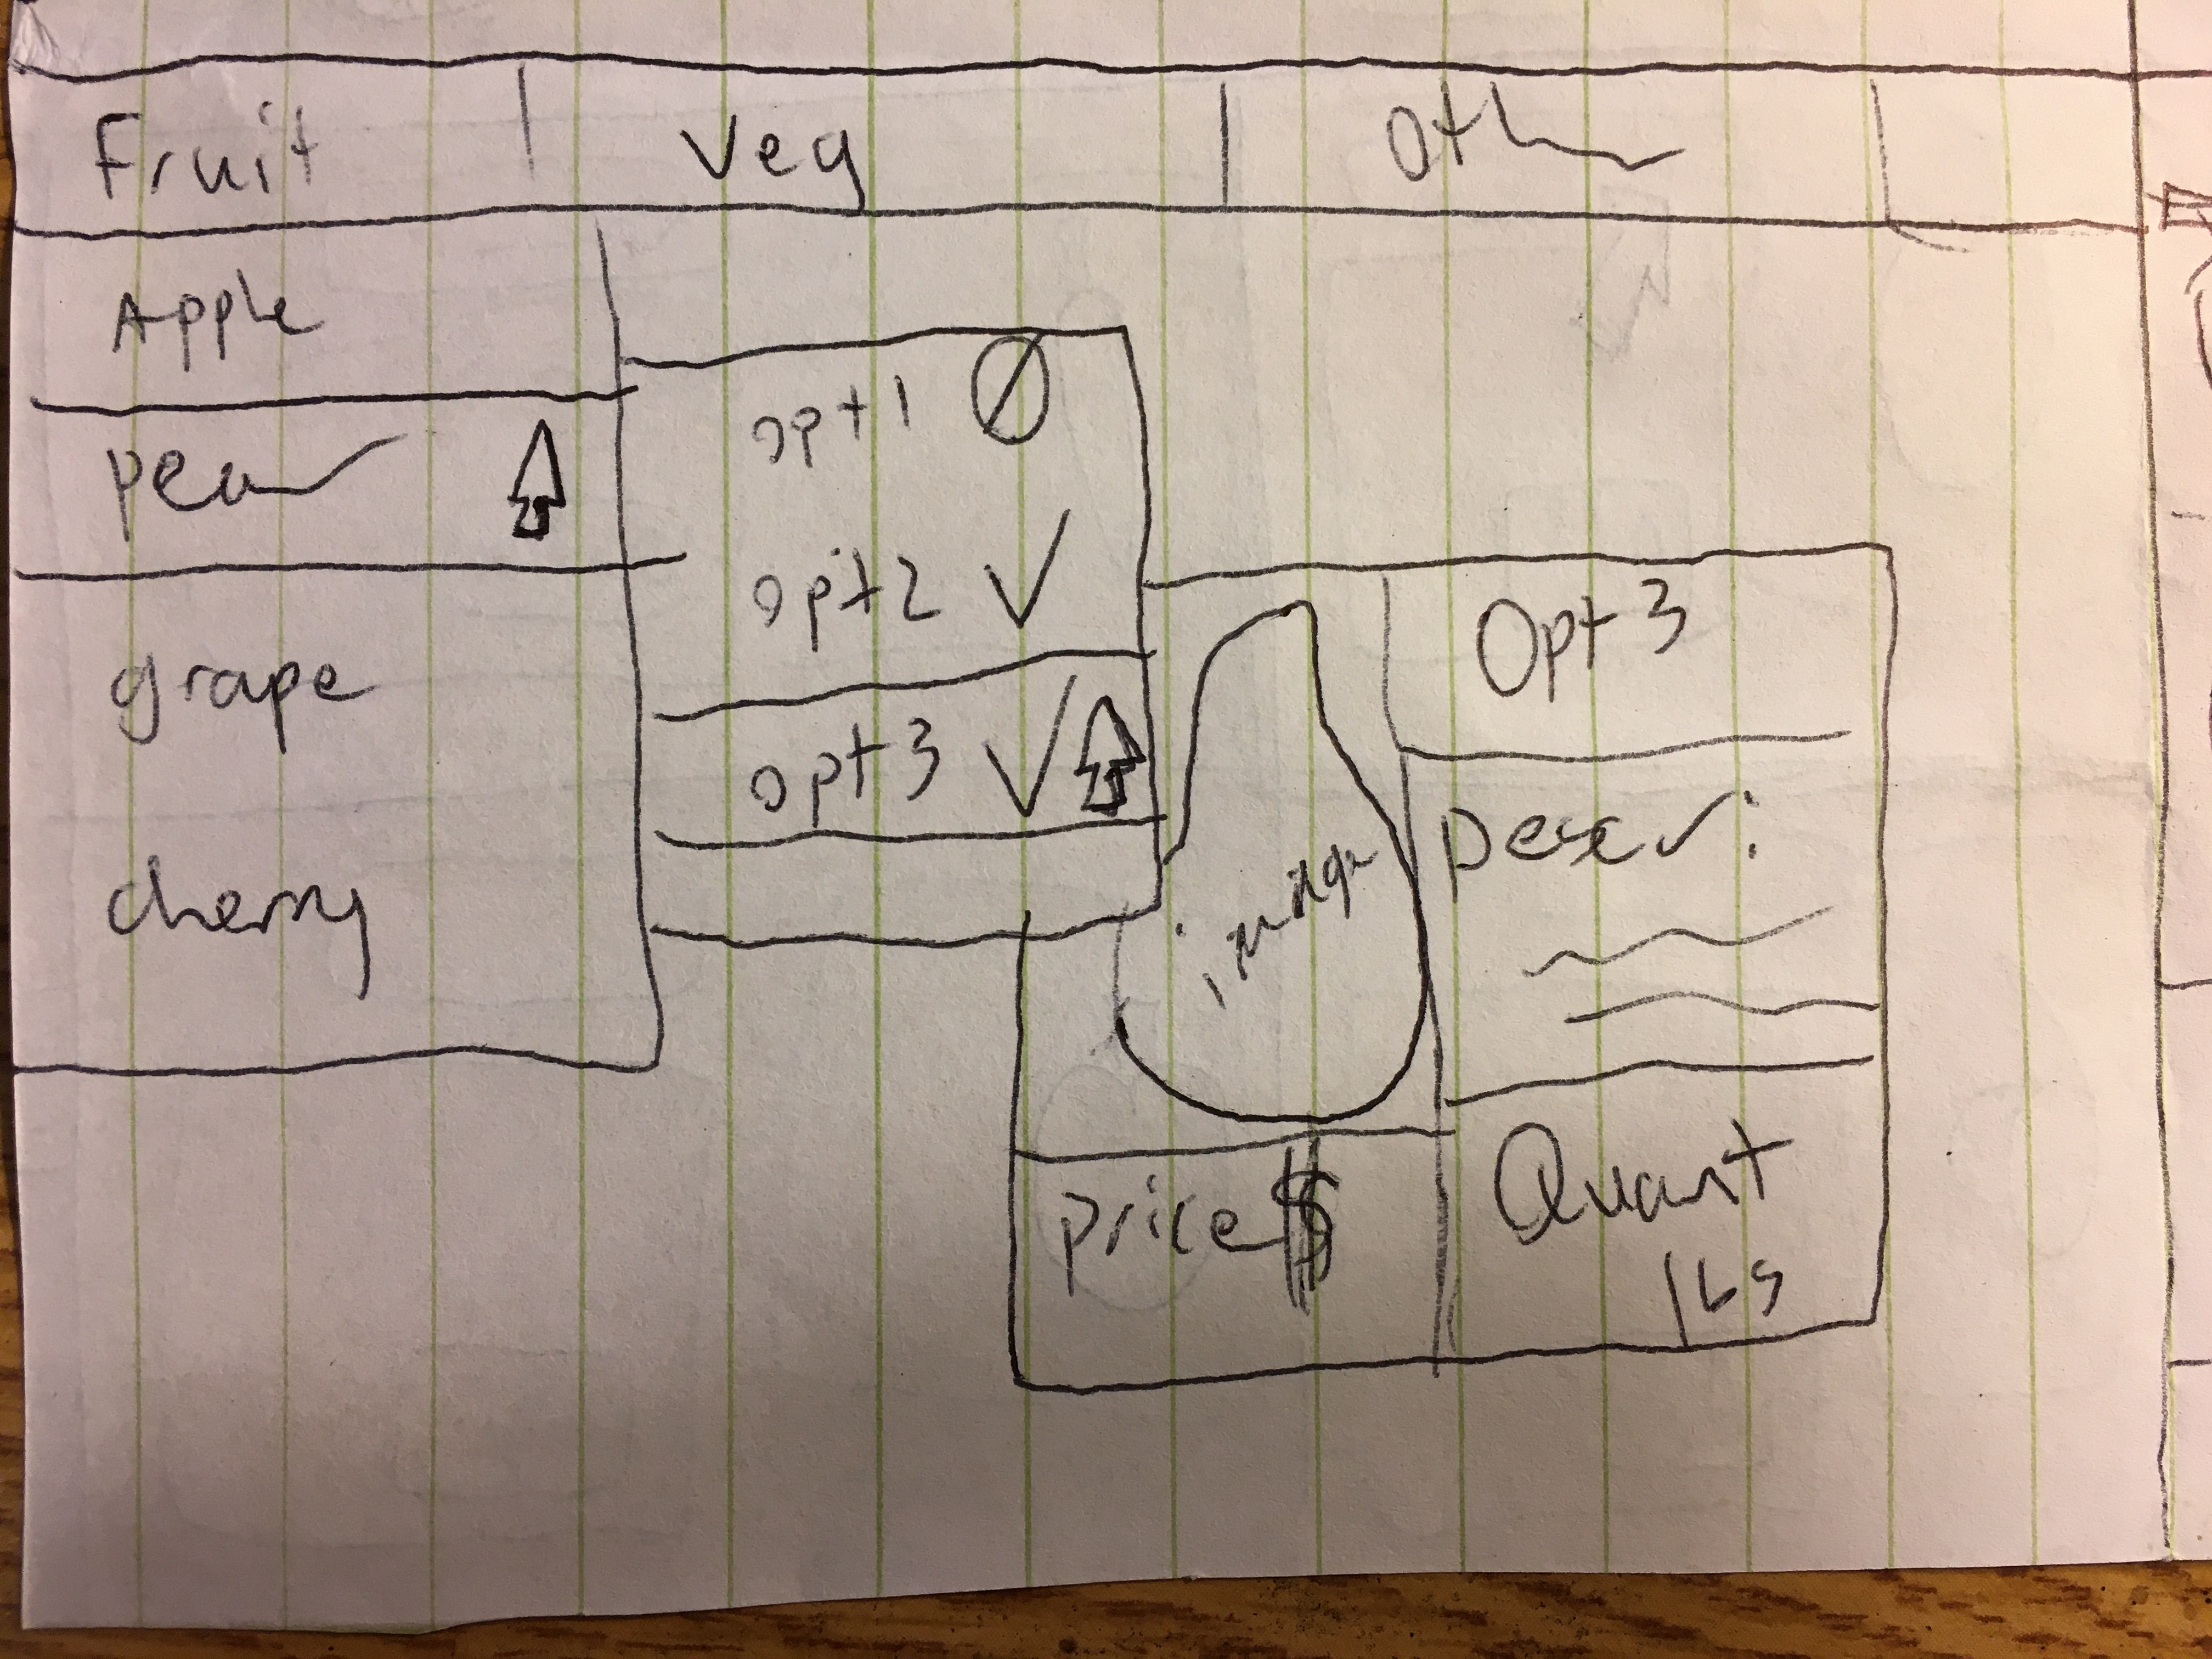 Fruit | Veg | Oth
Apple
pear
grape
cherry
opt 1
opt 2
opt 3
image
Opt 3
Descr:
price $
Quant
lbs